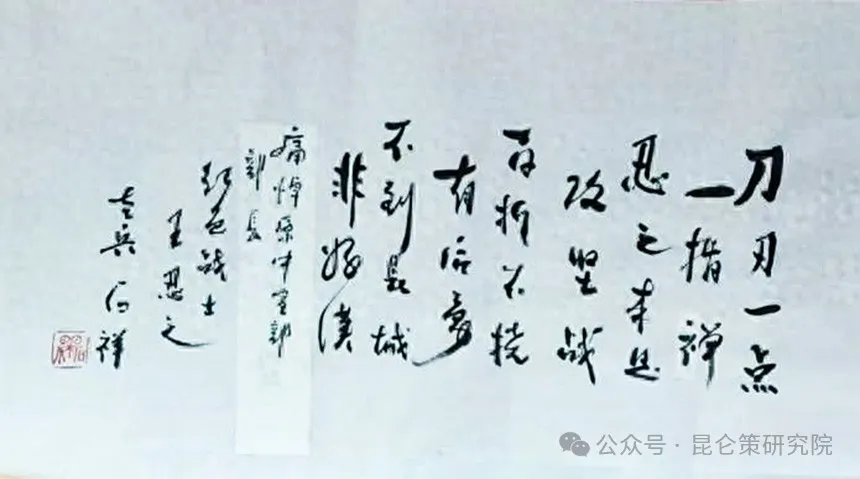 刀刃一点
一指禅
忍之本是
攻坚战
百折不挠
有后
不到长城
非好汉
痛悼原中宣部
部长
红色战士
王忍之
老兵 祥
公众号 · 昆仑策研究院